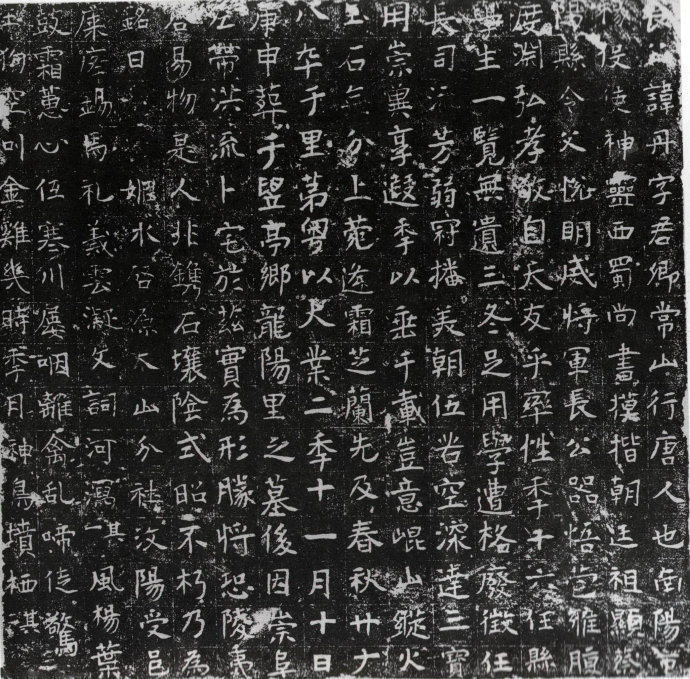 諱丹字君卿常山行唐人也南陽市
侯使神靈西蜀尚書模楷朝廷祖顯蔡
陽縣令父悅明威將軍長公器悟苞雅
度淵弘孝敬自天友乎率性季十六任縣
學生一覽無遺三冬足用學遭格廢徵任
長司流芳弱冠播美朝伍岩空深達三寶
用崇冀享遐季以垂千載豈意崐山縱火
玉石無分上苑逢霜芝蘭先及春秋廿有
八卒于里第粵以大業二季十一月十日
庚申葬于豎亭鄉龍陽里之墓後因崇阜
左帶洪流卜宅於茲實為形勝將恐陵夷
谷易物是人非鐫石壤陰式昭不朽乃為
銘曰 媯水啓源大山分社汶陽受邑
錫馬礼義雲凝文詞河寫其一風楊葉
鼓霜蕙心低寒川屢咽離禽乱啼徒驚
狗空叫金雞幾時季月神鳥墳栖其二